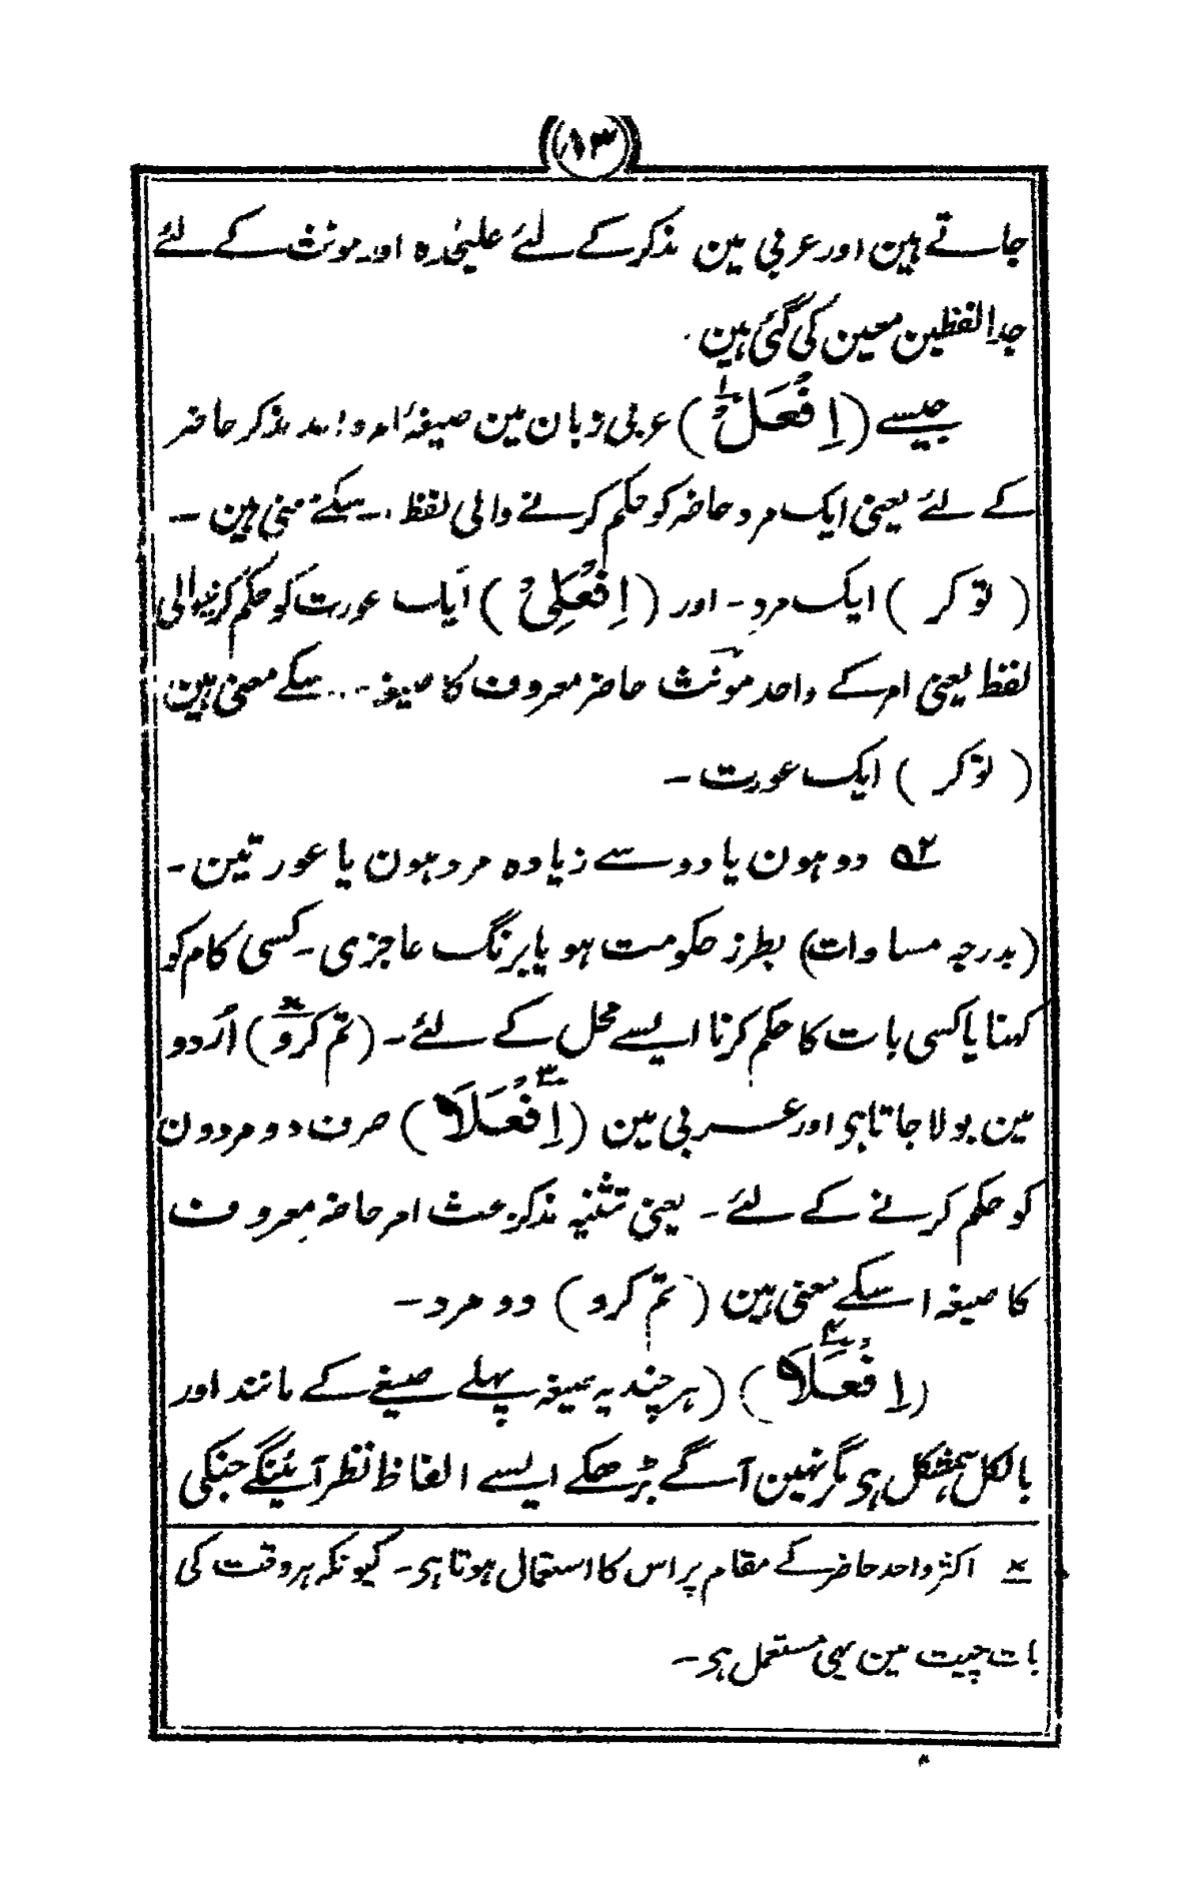 ۱۳
جاتے ہین اور عربی مین مذکر کے لئے علیحٰدہ اور مونث کے لئے
جدا لفظین معین کی گئی ہین
جیسے (اِفْعَلْ) عربی زبان مین صیغۂ امر واحد مذکر حاضر
کے لئے یعنی ایک مرد حاضر کو حکم کرنے والی لفظ اسکے معنی ہین ۔
( تو کر ) ایک مرد ۔ اور (اِفْعَلِیْ ) ایک عورت کو حکم کرنیوالی
لفظ یعنی امر کے واحد مونث حاضر معروف کا صیغہ ۔ اسکے معنی ہین
( تو کر ) ایک عورت ۔
۵۲ دو ہون یا دو سے زیادہ مرد ہون یا عورتین ۔
(بدرجہ مساوات) بطرز حکومت ہو یا برنگ عاجزی ۔ کسی کام کو
کہنا یا کسی بات کا حکم کرنا ایسے محل کے لئے ۔ (تم کرو) اُردو
مین بولا جاتا ہی اور عربی مین (اِفْعَلَا ۳) صرف دو مردون
کو حکم کرنے کے لئے ۔ یعنی تثنیہ مذکر بحث امر حاضر معروف
کا صیغہ اسکے معنی ہین ( تم کرو ) دو مرد ۔
(اِفْعَلَا ۴) (ہر چند یہ صیغہ پہلے صیغے کے مانند اور
بالکل ہمشکل ہی مگر نہین آگے بڑھکے ایسے الفاظ نظر آئینگے جنکی
× اکثر واحد حاضر کے مقام پر اس کا استعمال ہوتا ہی ۔ کیونکہ ہر وقت کی
بات چیت مین یہی مستعمل ہی ۔